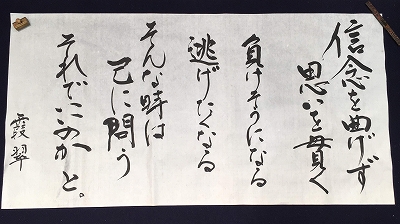 信念を曲げず
思いを貫く
負けそうになる
逃げたくなる
そんな時は
己に問う
それでいいのか と。
霞翠